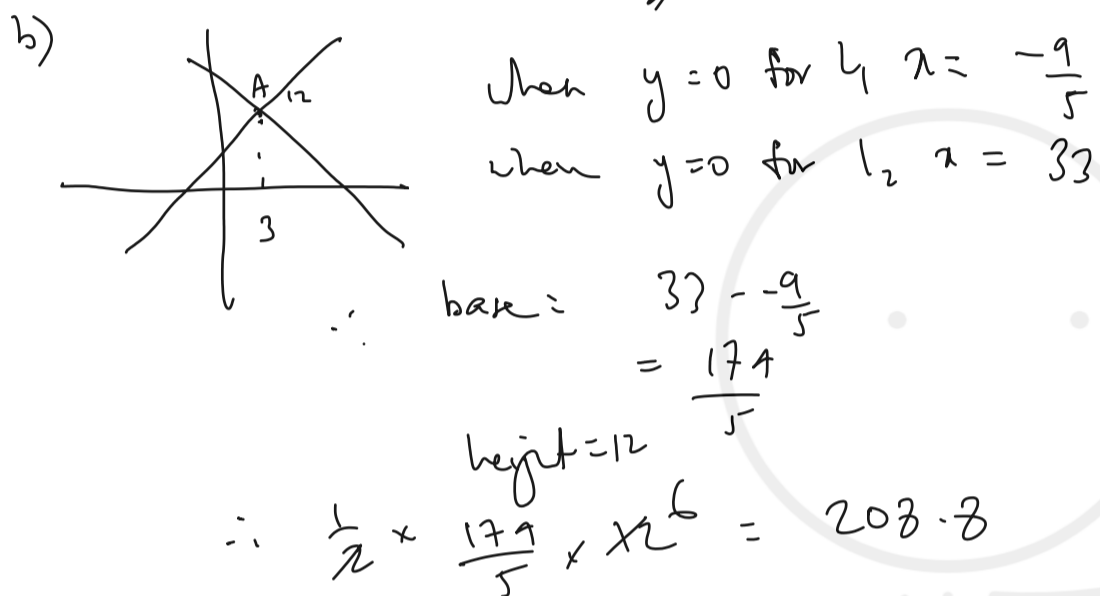 b)
A
12
3
when y=0 for l₁ x = -9/5
when y=0 for l₂ x = 33
∴ base = 33 - -9/5
= 174/5
height = 12
∴ 1/2 × 174/5 × 12 6 = 208.8